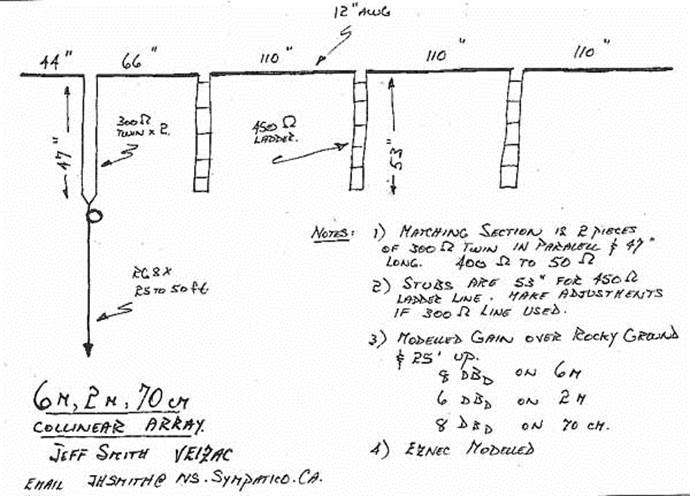 12" AWG
44"
66"
110"
110"
110"
47"
300Ω
TWIN x 2.
450Ω
LADDER.
53"
RG8X
25 TO 50 ft
NOTES: 1) MATCHING SECTION IS 2 PIECES
OF 300Ω TWIN IN PARALELL & 47"
LONG. 400 Ω TO 50 Ω
2) STUBS ARE 53" FOR 450Ω
LADDER LINE. MAKE ADJUSTMENTS
IF 300Ω LINE USED.
3) MODELLED GAIN OVER ROCKY GROUND
& 25' UP.
8 DBD ON 6M
6 DBD ON 2M
8 DBD ON 70 CM.
4) EZNEC MODELLED
6M, 2M, 70 CM
COLLINEAR ARRAY.
JEFF SMITH VE1ZAC
EMAIL JHSMITH@NS.SYMPATICO.CA.